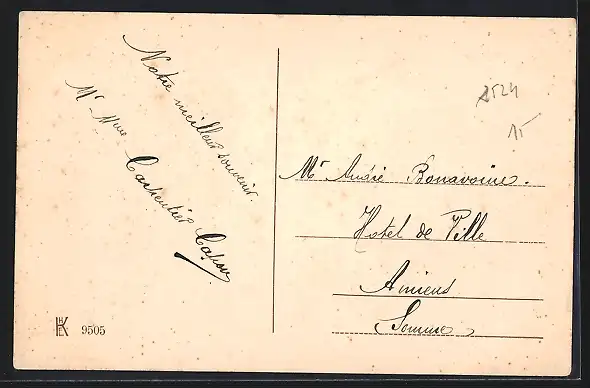 Notre meilleur souvenir.
Mr Mme Carpentier
Mr André Bonavoine.
Hotel de Ville
Amiens
Somme
9505
15